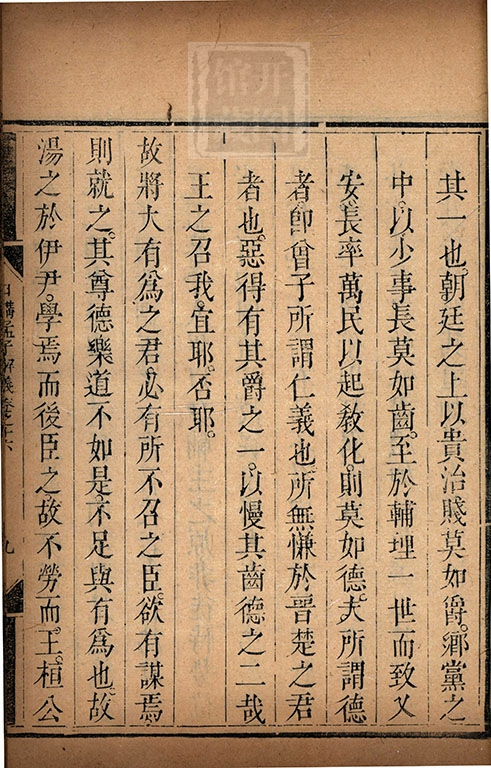 其一也。朝廷之上以貴治賤莫如爵。鄉黨之
中。以少事長莫如齒。至於輔理一世而致乂
安。長率萬民以起敎化。則莫如德。夫所謂德
者卽曾子所謂仁義也所無慊於晉楚之君
者也。惡得有其爵之一。以慢其齒德之二哉
王之召我。宜耶。否耶。
故將大有爲之君。必有所不召之臣。欲有謀焉。
則就之。其尊德樂道不如是不足與有爲也。故
湯之於伊尹。學焉而後臣之。故不勞而王。桓公
日講孟子解義
九